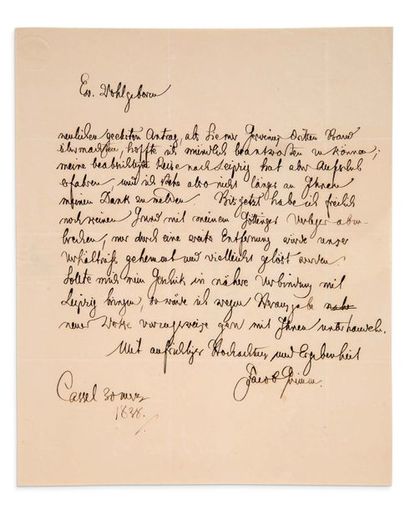 Ew. Wohlgeboren
neulichen geehrten Antrag, als Sie mir Gervinus dritten Band
übermachten, hoffte ich mündlich beantworten zu können;
meine beabsichtigte Reise nach Leipzig hat aber Aufschub
erfahren, und ich stehe also nicht länger an Ihnen
meinen Dank zu melden. Bis jetzt habe ich freilich
noch keinen Grund mit meinem Göttinger Verleger abzu-
brechen, nur durch eine weite Entfernung würde unser
Verhältniß gehemmt und vielleicht gelöst werden
Sollte mich mein Geschick in nähere Verbindung mit
Leipzig bringen, so würde ich wegen Herausgabe
neuer Werke vorzugsweise gern mit Ihnen unterhandeln.
Mit aufrichtiger Hochachtung und Ergebenheit
Jacob Grimm.
Cassel 30 merz
1838.